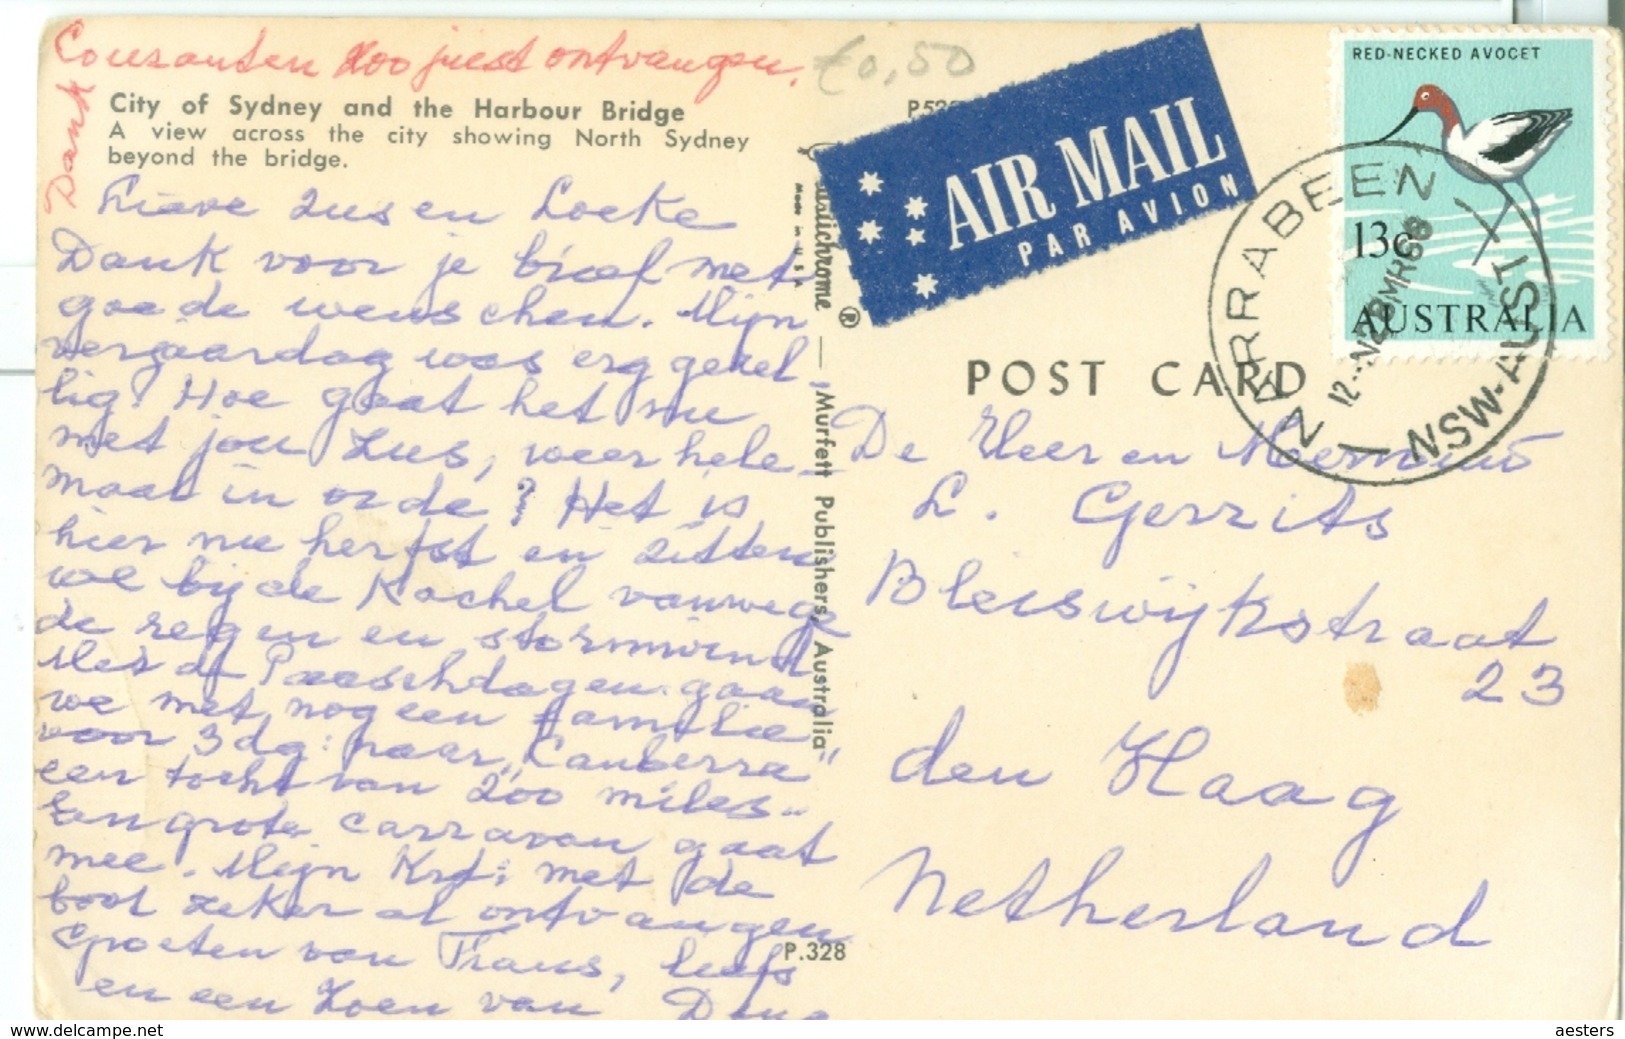 Couranten zoo juist ontvangen.
Dank
€0,50
City of Sydney and the Harbour Bridge
A view across the city showing North Sydney
beyond the bridge.
Lieve Zus en Loeke
Dank voor je brief met
goede wenschen. Mijn
verjaardag was erg gezel-
lig! Hoe gaat het nu
met jou Zus, weer hele-
maal in orde? Het is
hier nu herfst en zitten
we bij de Kachel vanwege
de regen en stormwind
Paaschdagen gaan
we met nog een familie
voor 3 dg: naar "Canberra"
een tocht van 200 miles..
Een grote carravan gaat
mee. Mijn Krt: met de
boot zeker al ontvangen
Groeten van Frans, liefs
en een Zoen van
P.328
Made in U.S.A.
® — "Murfett Publishers, Australia"
AIR MAIL
PAR AVION
RED-NECKED AVOCET
13c
AUSTRALIA
NARRABEEN
NSW-AUST
POST CARD
De Heer en Mevrouw
L. Gerrits
Bleiswijkstraat
23
den Haag
Netherland
www.delcampe.net
aesters